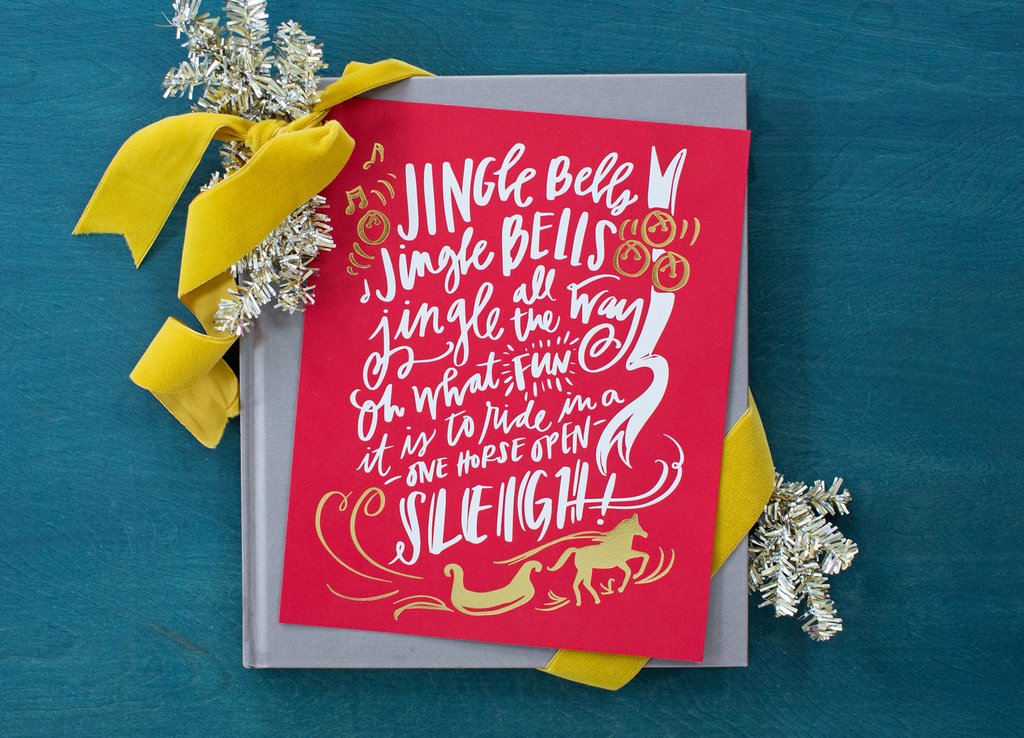 JINGLE Bells
Jingle BELLS
jingle all the way
Oh what FUN
it is to ride in a
- ONE HORSE OPEN -
SLEIGH!